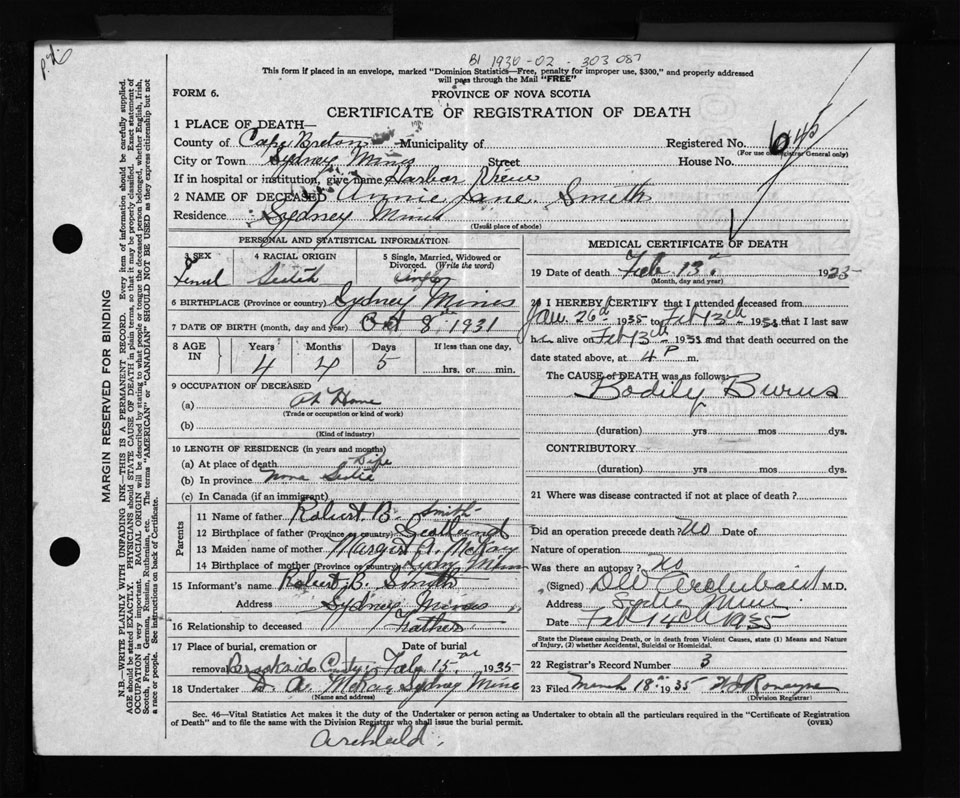 B1 1936-02. 303 087
This form if placed in an envelope, marked "Dominion Statistics—Free, penalty for improper use, $300," and properly addressed
will pass through the Mail "FREE"
FORM 6.
PROVINCE OF NOVA SCOTIA
CERTIFICATE OF REGISTRATION OF DEATH
1 PLACE OF DEATH—
County of Cape Breton —Municipality of Registered No. 645
(For use of Registrar General only)
City or Town Sydney Mines Street House No.
If in hospital or institution, give name Harbor View
2 NAME OF DECEASED Annie Jane Smith
Residence Sydney Mines
(Usual place of abode)
PERSONAL AND STATISTICAL INFORMATION
3 SEX
4 RACIAL ORIGIN
5 Single, Married, Widowed or Divorced. (Write the word)
6 BIRTHPLACE (Province or country) Sydney Mines
7 DATE OF BIRTH (month, day and year) Oct 8 1931
8 AGE IN
Years Months Days If less than one day,
4 4 5 hrs. or min.
9 OCCUPATION OF DECEASED
(a) At Home
(Trade or occupation or kind of work)
(b)
(Kind of industry)
10 LENGTH OF RESIDENCE (in years and months)
(a) At place of death Life
(b) In province Nova Scotia
(c) In Canada (if an immigrant)
Parents
11 Name of father Robert B. Smith
12 Birthplace of father (Province or country) Scotland
13 Maiden name of mother Margaret A. McKay
14 Birthplace of mother (Province or country) Sydney Mines
15 Informant's name Robert B. Smith
Address Sydney Mines
16 Relationship to deceased Father
17 Place of burial, cremation or removal Date of burial
Feb 15 1935
18 Undertaker D. A. McKay Sydney Mine
(Name and address)
MEDICAL CERTIFICATE OF DEATH
19 Date of death Feb 13 1935
(Month, day and year)
20 I HEREBY CERTIFY that I attended deceased from
Jan. 26th 1935 to Feb 13th 1935 that I last saw
her alive on Feb 13th 1935 and that death occurred on the
date stated above, at 4 P m.
The CAUSE of DEATH was as follows:
Bodily Burns
(duration) yrs mos dys.
CONTRIBUTORY
(duration) yrs mos dys.
21 Where was disease contracted if not at place of death?
Did an operation precede death? No Date of
Nature of operation
Was there an autopsy? No
(Signed) DW Archibald M.D.
Address Sydney Mines
Date Feb 14th 1935
State the Disease causing Death, or in death from Violent Causes, state (1) Means and Nature
of Injury, (2) whether Accidental, Suicidal or Homicidal.
22 Registrar's Record Number 3
23 Filed March 18 1935
(Division Registrar)
Sec. 46—Vital Statistics Act makes it the duty of the Undertaker or person acting as Undertaker to obtain all the particulars required in the "Certificate of Registration
of Death" and to file the same with the Division Registrar who shall issue the burial permit. (OVER)
Archibald.
MARGIN RESERVED FOR BINDING
N.B.—WRITE PLAINLY WITH UNFADING INK—THIS IS A PERMANENT RECORD. Every item of information should be carefully supplied.
AGE should be stated EXACTLY. PHYSICIANS should STATE CAUSE OF DEATH in plain terms, so that it may be properly classified. Exact statement of
OCCUPATION is very important. RACIAL ORIGIN will be described by stating to what people or tongue the deceased person belonged, whether English, Irish,
Scotch, French, German, Russian, Ruthenian, etc. The terms "AMERICAN" or "CANADIAN" SHOULD NOT BE USED as they express citizenship but not
a race or people. See instructions on back of Certificate.